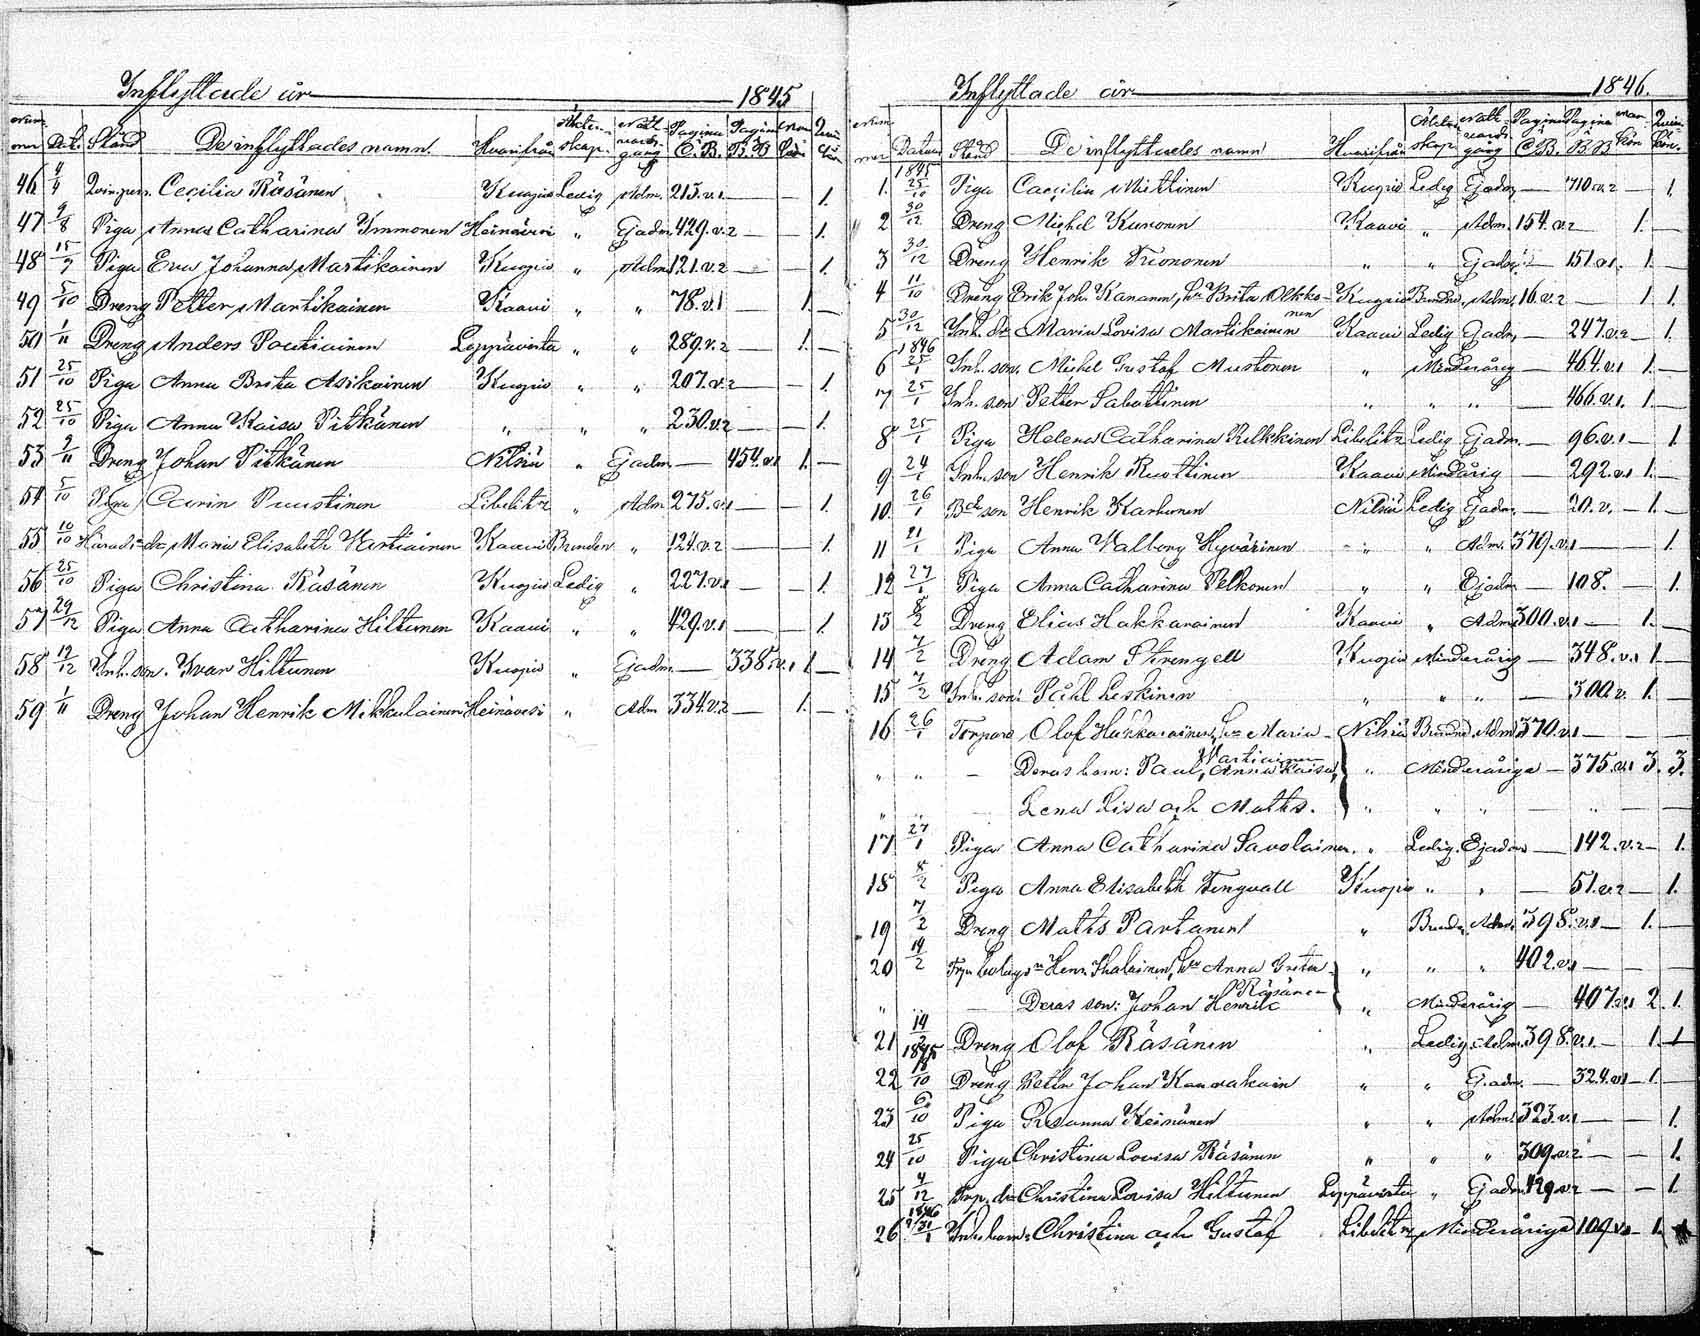 Inflyttade år 1845
Num- mer Dat. Stånd De inflyttades namn. Hvarifrån Äkten- skap. Natt- vards- gång Pagina C.B. Pagina B.B. Man- kön Qvin- kön
46 Qvin.pers. Cecilia Räsänen Kuopio Ledig Adm. 215.v.1 — — 1.
47 9/8 Piga Anna Catharina Immonen Heinävesi " Ej adm. 429.v.2 — — 1.
48 15/9 Piga Eva Johanna Martikainen Kuopio " Adm. 121.v.2 — — 1.
49 5/10 Dreng Petter Martikainen Kaavi " " 78.v.1 — 1. —
50 1/11 Dreng Anders Poutiainen Leppävirta " " 289.v.2 — 1. —
51 25/10 Piga Anna Brita Asikainen Kuopio " " 207.v.2 — — 1.
52 25/10 Piga Anna Kaisa Pitkänen " " " 230.v.2 — — 1.
53 9/11 Dreng Johan Pitkänen Nilsiä " Ej adm. — 454.v.1 1. —
54 5/10 Piga Carin Puustinen Libelitz " Adm. 275.v.1 — — 1.
55 10/10 Maria Elisabeth Vartiainen Kaavi Bunden " 124.v.2 — — 1.
56 25/10 Piga Christina Räsänen Kuopio Ledig " 227.v.1 — — 1.
57 29/12 Piga Anna Catharina Hiltunen Kaavi " " 429.v.1 — — 1.
58 12/12 Inh. son. Ivar Hiltunen Kuopio " Ej adm. — 338.v.1 1 —
59 1/11 Dreng Johan Henrik Mikkulainen Heinävesi " Adm 334.v.2 — 1. —
Inflyttade år 1846.
Num- mer Datum Stånd De inflyttades namn Hvarifrån Äkten- skap Natt- vards- gång Pagina C.B. Pagina B.B. Man- kön Qvin- kön.
1845
1. 25/10 Piga Caecilia Miettinen Kuopio Ledig Ej adm. — 710.v.2 — 1.
2 30/12 Dreng Michel Kunonen Kaavi " Adm. 154.v.2 — 1. —
3 30/12 Dreng Henrik " " Ej adm. — 151.v.1. 1. —
4 11/10 Dreng Erik Joh. Kananen, Hu Brita Olkko- Kuopio Bundna. Adm. 16.v.2 — 1 1.
nen
5 30/12 Inh. dr Maria Lovisa Martikainen Kaavi Ledig Ej adm. — 247.v.2 — 1.
1846
6 25/1 Inh. son. Michel Gustaf Mustonen " Minderårig — 464.v.1 1. —
7 25/1 Inh. son Petter Sabattinen " " " — 466.v.1. 1. —
8 25/1 Piga Helena Catharina Relkkinen Libelitz Ledig Ej adm. — 96.v.1 — 1.
9 24/1 Inh. son Henrik Ruottinen Kaavi Mindårig — 292.v.1 1. —
10. 26/1 son Henrik Karhunen Nilsiä Ledig Ej adm. — 20.v. — 1. —
11 21/1 Piga Anna Walborg Hyvärinen " " Adm. 379.v.1 — — 1.
12 27/1 Piga Anna Catharina Pelkonen " " Ej adm — 108. — 1
13 8/2 Dreng Elias Hakkarainen Kaavi " Adm 300.v.1 — 1. —
14 7/2 Dreng Adam Strengell Kuopio Minderårig — 348.v.1 1. —
15 7/2 Inh. son: Påhl Leskinen " " " — 300.v. 1. —
16 26/1 Torpare Olof Hakkarainen, Hu Maria — Nilsiä Bundna Adm 370.v.1 — — —
Vartiainen
" " — Deras barn: Paul, Anna Kaisa, " Minderåriga — 375.v.1 3. 3.
" " — Lena Lisa och Maths. " " " — " — —
17 27/1 Piga Anna Catharina Savolainen. " Ledig. Ej adm — 142.v.2 — 1.
18 8/2 Piga Anna Elisabeth Tengvall Kuopio " " — 51.v.2 — 1.
19 7/2 Dreng Maths Partanen " Bunden Adm. 398.v.1 — 1. —
20 14/2 Trp. bolags Henr. Ihalainen, Hu Anna Greta — " " " 402.v.1 — — —
Räsänen
" — Deras son: Johan Henrik " Minderårig — 407.v.1 2. 1.
21 14/2 Dreng Olof Räsänen " Ledig Adm. 398.v.1. — 1. 1
1845
22 18/10 Dreng Petter Johan " " Ej adm. — 324.v.1 — 1. —
23 6/10 Piga Susanna Keinänen " " Adm. 323.v.1 — — 1.
24 25/10 Piga Christina Lovisa Räsänen " " " 309.v.2 — — 1.
25 4/12 Trp. dr Christina Lovisa Hiltunen Leppävirta " Ej adm. 429.v.2 — — 1.
1846
26 31/1 Inh. barn: Christina och Gustaf Libelitz Minderåriga 109.v.2 — 1.